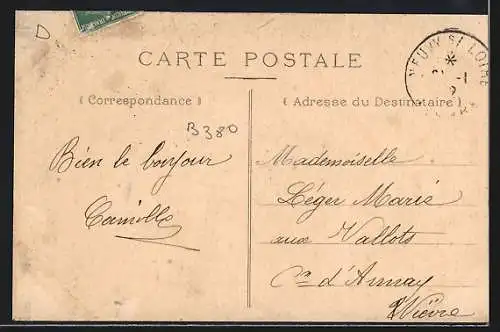 D
CARTE POSTALE
( Correspondance )
( Adresse du Destinataire )
B380
Bien le bonjour
Camille
Mademoiselle
Léger Marie
aux Vallots
Cne d'Annay
Nièvre